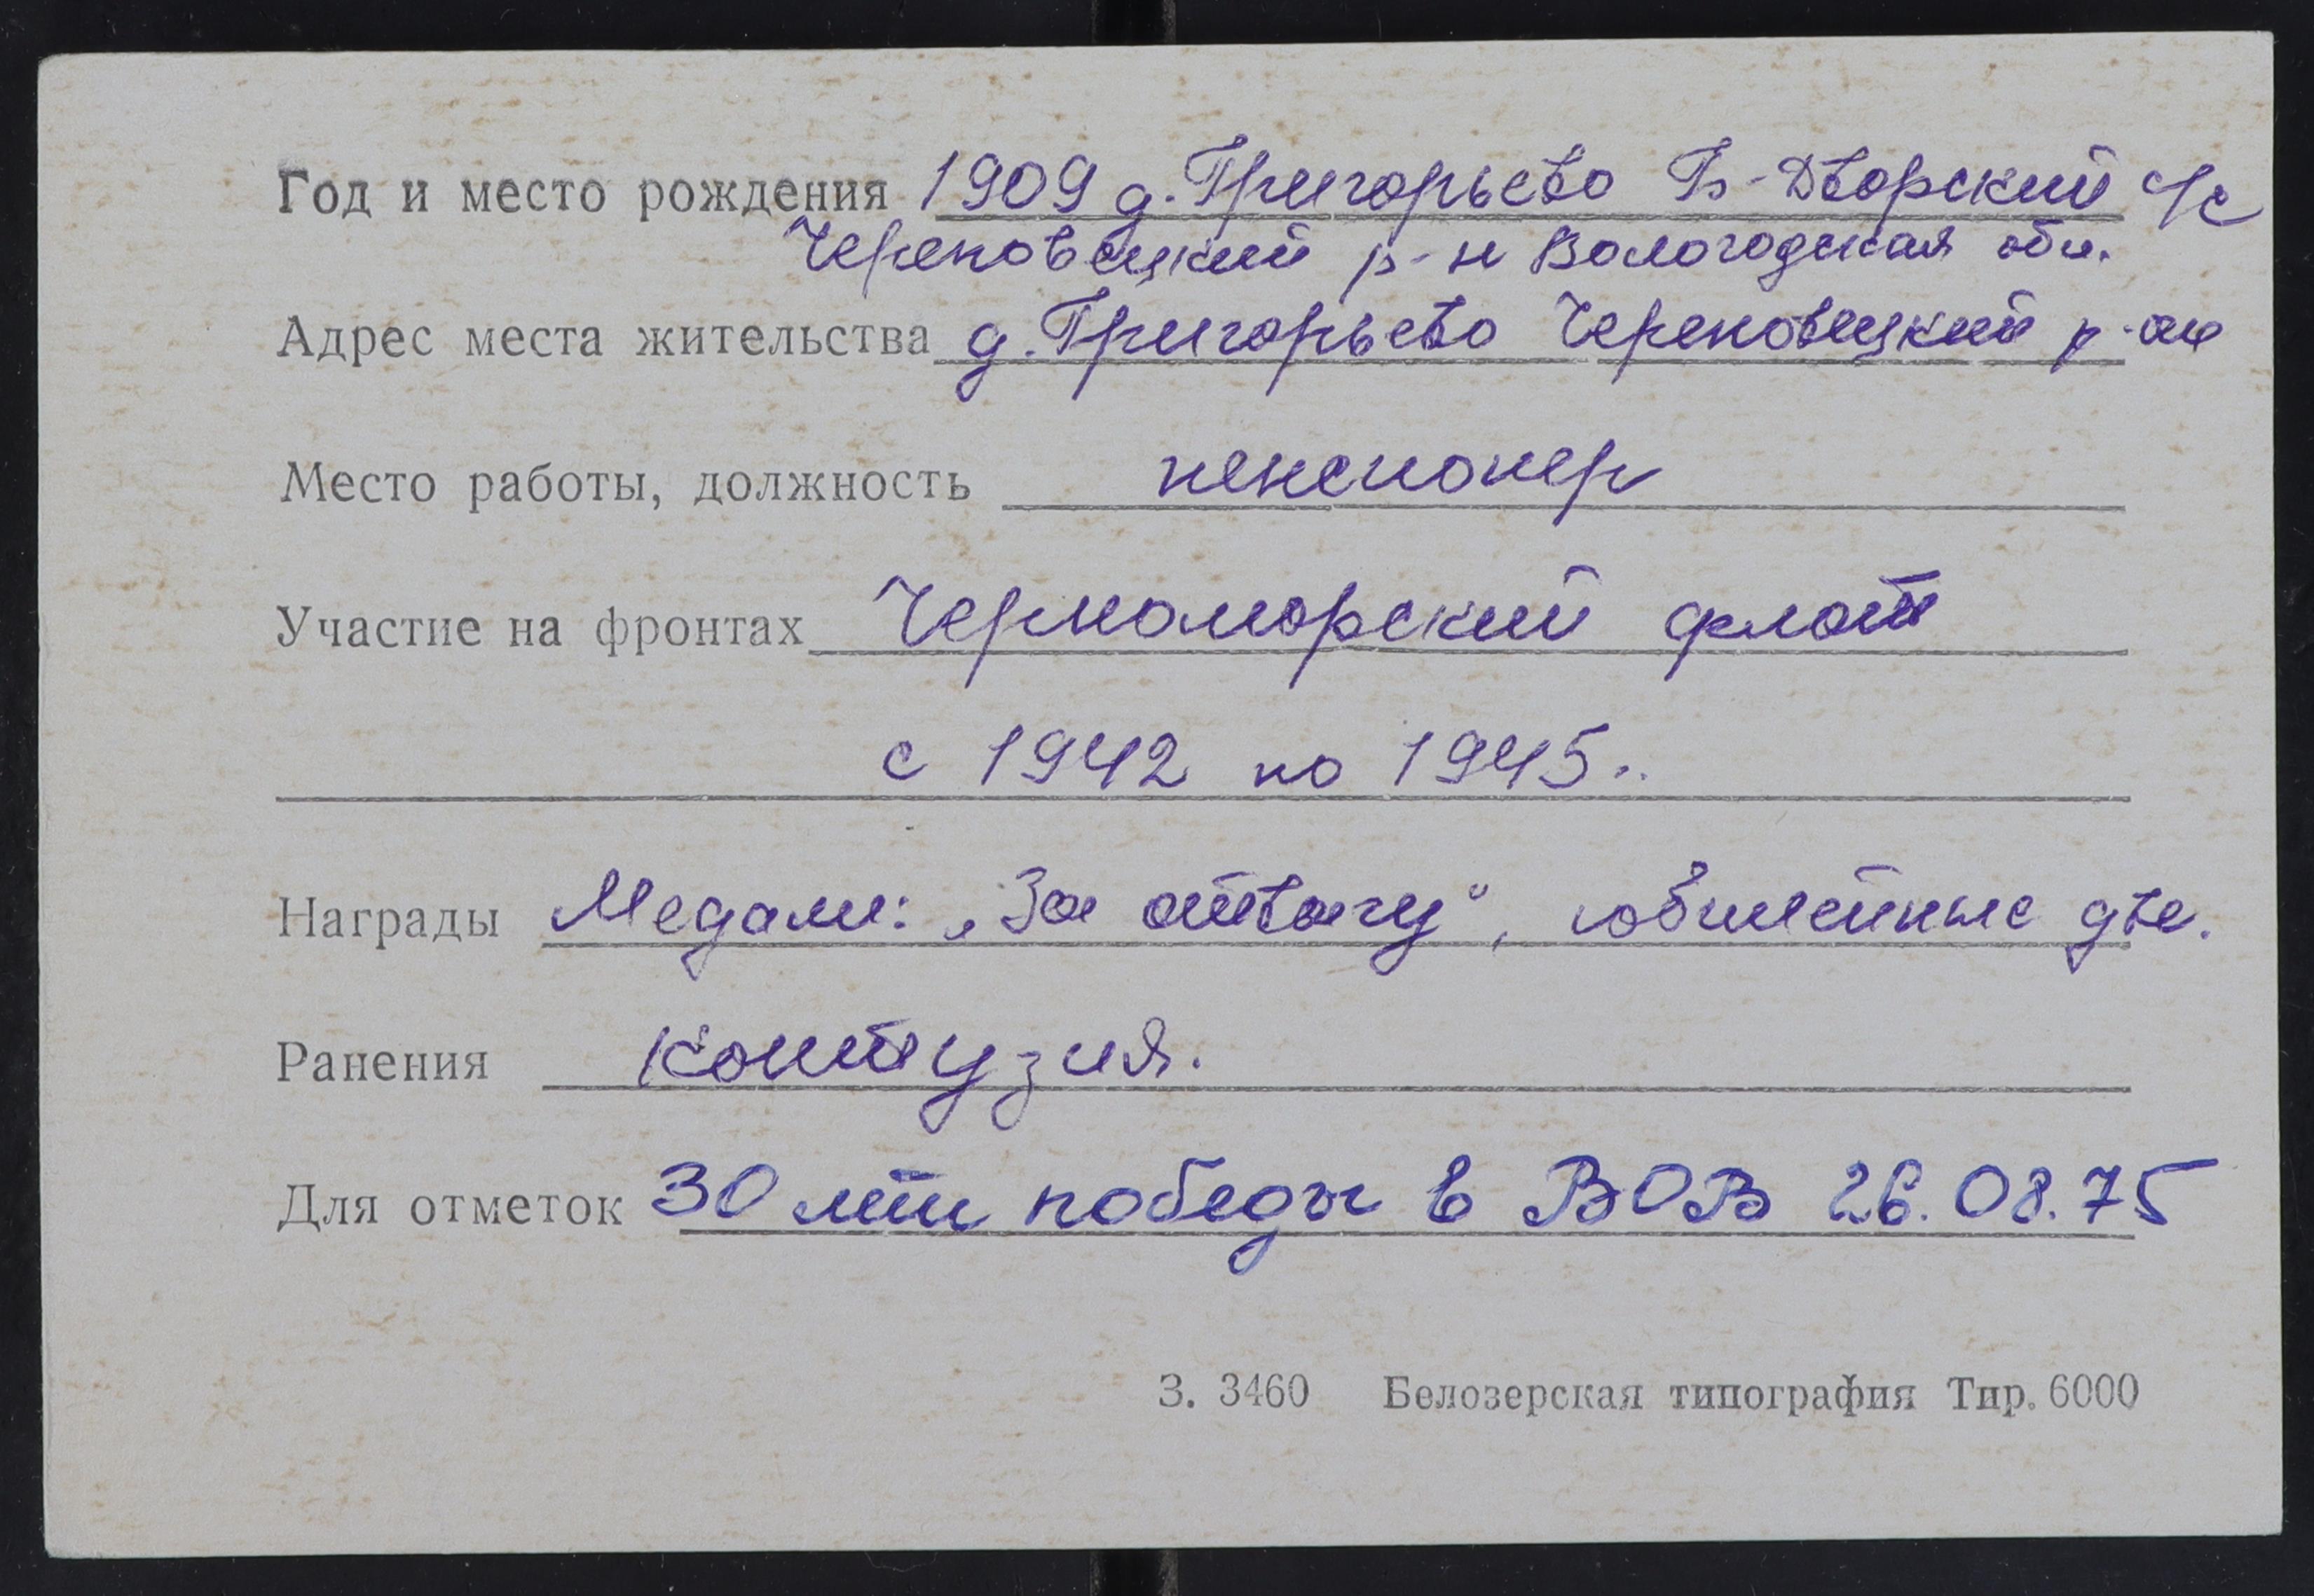 Год и место рождения 1909 д. Григорьево Б-Дворский с/с
Череповецкий р-н Вологодская обл.
Адрес места жительства д. Григорьево Череповецкий р-он
Место работы, должность пенсионер
Участие на фронтах Черноморский флот
с 1942 по 1945..
Награды Медали: „За отвагу“, юбилейные две.
Ранения контузия.
Для отметок 30 лет победы в ВОВ 26.08.75
З. 3460 Белозерская типография Тир. 6000